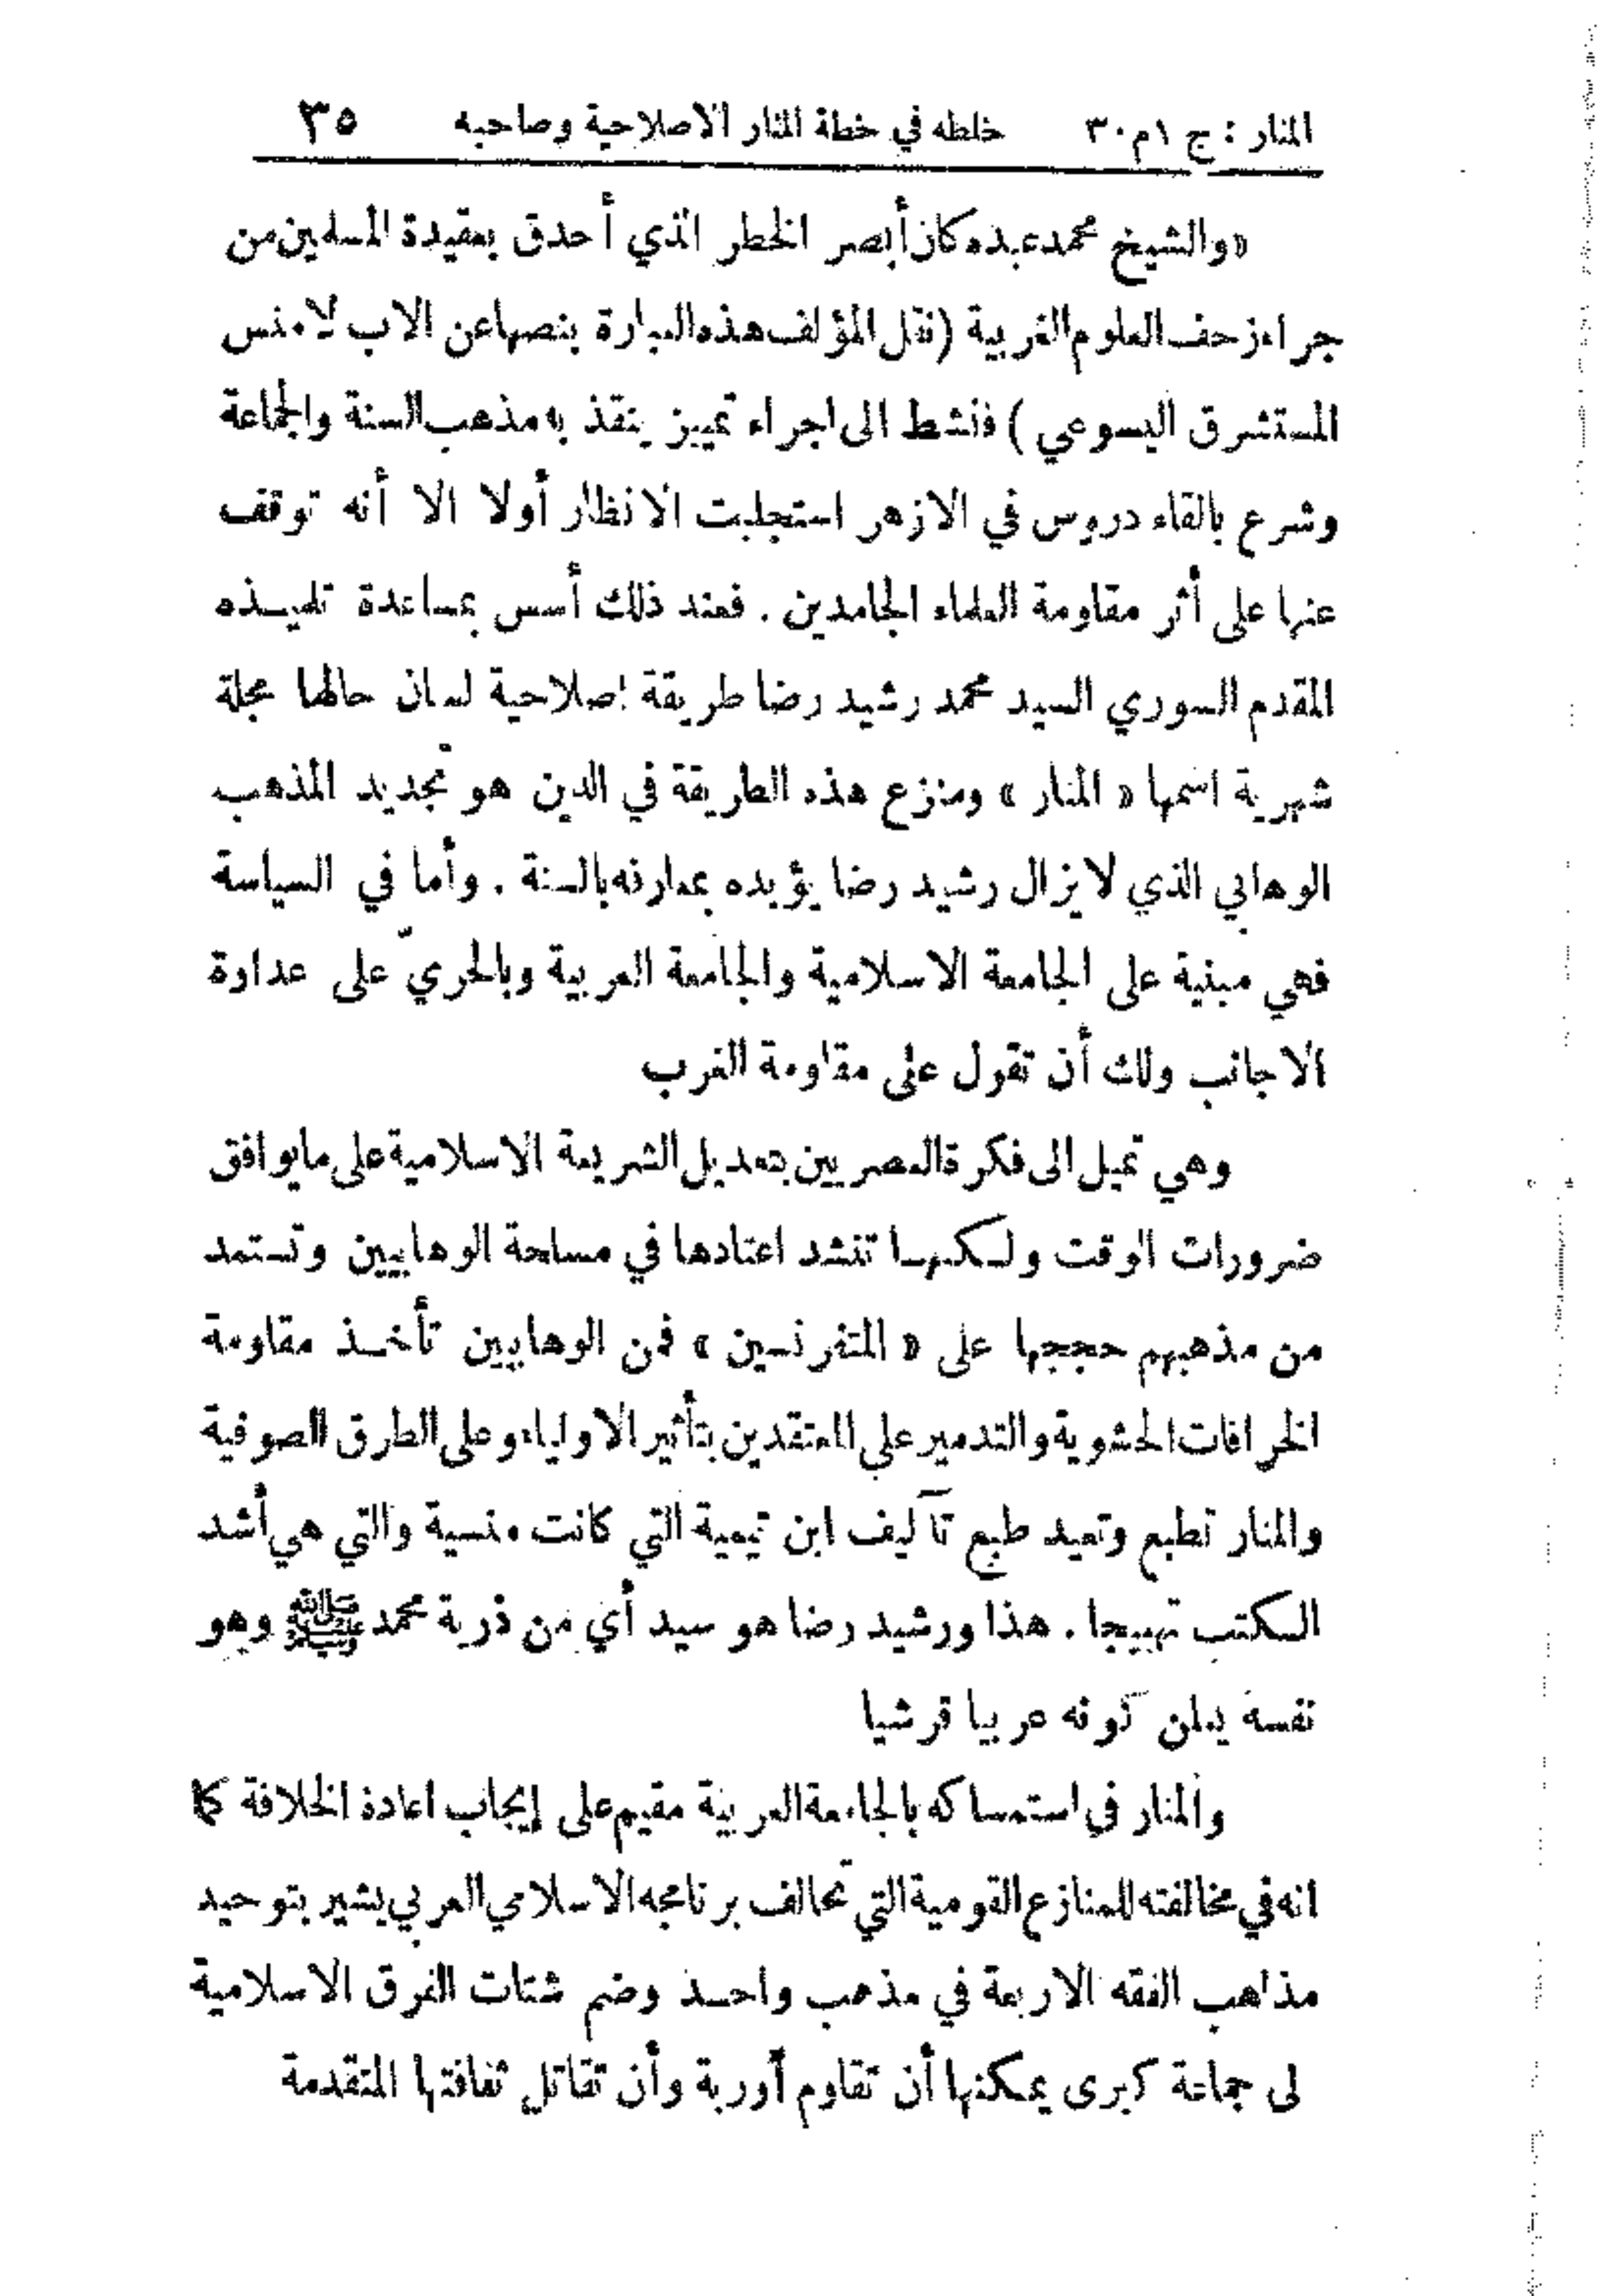 المنار : ج ١ م ٣٠ خلطه في خطة المنار الاصلاحية وصاحبه ٣٥
«والشيخ محمد عبده كان أبصر الخطر الذي أحدق بعقيدة المسلمين من
جراء زحف العلوم الغربية (نقل المؤلف هذه العبارة بنصها عن الاب لامنس
المستشرق اليسوعي ) فنشط الى اجراء تمييز ينقذ به مذهب السنة والجماعة
وشرع بالقاء دروس في الازهر استجلبت الانظار أولا الا أنه توقف
عنها على أثر مقاومة العلماء الجامدين . فعند ذلك أسس بمساعدة تلميذه
المقدم السوري السيد محمد رشيد رضا طريقة إصلاحية لسان حالها مجلة
شهرية اسمها « المنار » ومنزع هذه الطريقة في الدين هو تجديد المذهب
الوهابي الذي لا يزال رشيد رضا يؤيده بمعارفه بالسنة . وأما في السياسة
فهي مبنية على الجامعة الاسلامية والجامعة العربية وبالحريّ على عداوة
الاجانب ولك أن تقول على مقاومة الغرب
وهي تميل الى فكرة العصريين بتعديل الشريعة الاسلامية على ما يوافق
ضرورات الوقت ولكنها تنشد اعتمادها في مسلحة الوهابيين وتستمد
من مذهبهم حججها على « المتفرنسين » فمن الوهابيين تأخذ مقاومة
الخرافات الحشوية والتدمير على المعتقدين بتأثير الاولياء وعلى الطرق الصوفية
والمنار تطبع وتعيد طبع تآليف ابن تيمية التي كانت منسية والتي هي أشد
الكتب تهييجا . هذا ورشيد رضا هو سيد أي من ذرية محمد ﷺ وهو
نفسه يعلن كونه عربيا قرشيا
والمنار في استمساكه بالجامعة العربية مقيم على إيجاب اعادة الخلافة كما
انه في مخالفته للمنازع القومية التي تخالف برنامجه الاسلامي العربي يشير بتوحيد
مذاهب الفقه الاربعة في مذهب واحد وضم شتات الفرق الاسلامية
لى جماعة كبرى يمكنها أن تقاوم أوربة وأن تقاتل ثقافتها المتقدمة